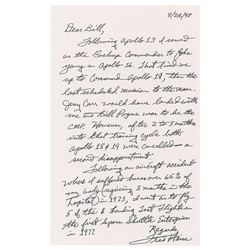 8/20/98
Dear Bill,
Following Apollo 13 I served
as the Backup Commander to John
Young on Apollo 16. That led me
up to Command Apollo 19, then the
last scheduled mission to the moon.
Jerry Carr would have landed with
me and Bill Pogue was to be the
CMP. However, after 2 to 3 months
into that training cycle both
Apollo 18 & 19 were cancelled - a
second disappointment.
Following an aircraft accident
where I suffered burns over 65% of
my body requiring 3 months in this
hospital) in 1973, I went on to fly
5 of the 8 landing test flights on
the first Space Shuttle Enterprise
in 1977
Regards,
Fred Haise